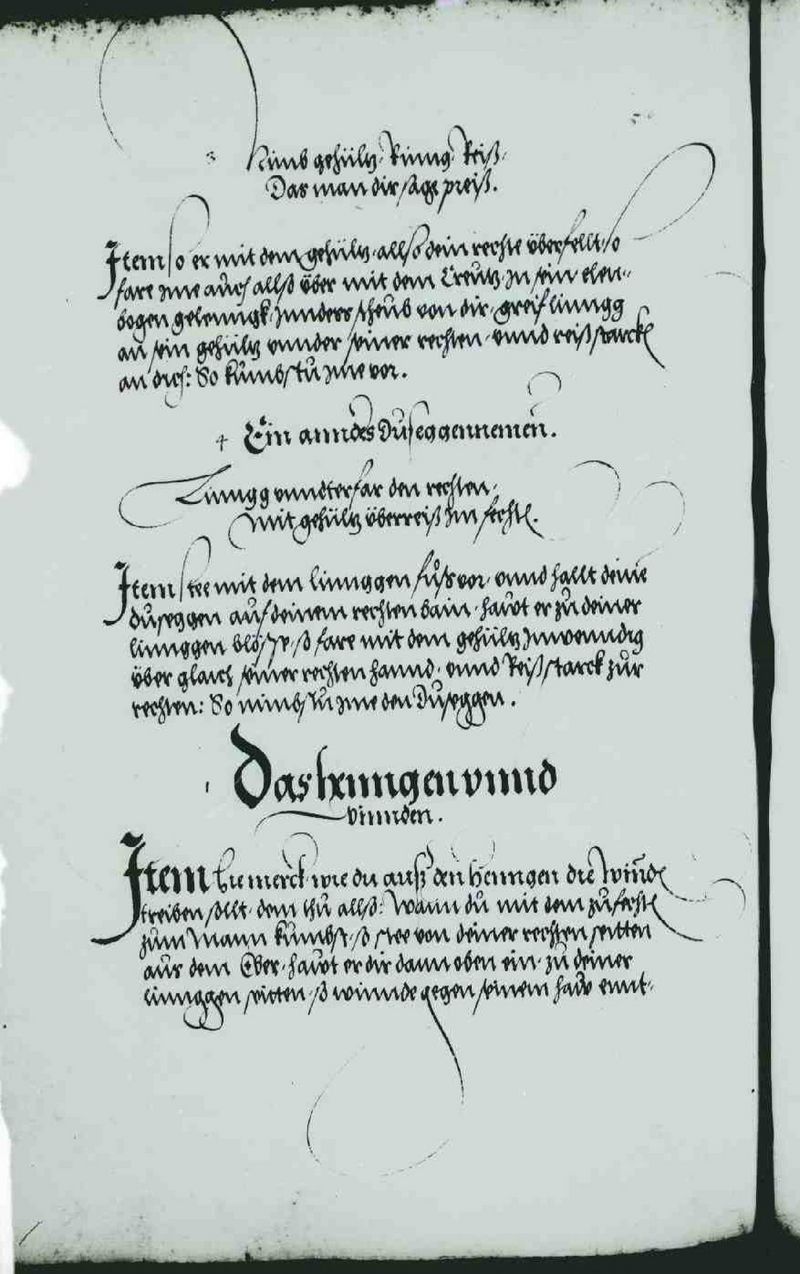 3 Nimb gehültz, Ring, Reiß,
Das man dir sage preiß.
Item so er mit dem gehültz allso dein rechte überfellt, so
fare Ime auch allso über mit dem Creutz In sein elen-
bogen gelennigk, Innders scheub von dir, greif linngg
an sein gehültz vnnder seiner rechten, vnnd reiß starck
an dich: So kumbstu Ime vor.
4 Ein annders Duseggennemen.
Linngg vnndterfar den rechten,
Mit gehültz überreiß Im fechten.
Item stee mit dem linnggen fuß vor, vnnd hallt deine
duseggen auf deinem rechten bain, hawt er zu deiner
linnggen blösse, so fare mit dem gehültz Inwenndig
über gleich seiner rechten hannd, vnnd Reiß starck zur
rechten: So nimbstu Ime den Duseggen.
1 Das henngen vnnd
vinnden.
Item hie merck wie du auß den Henngen die winnden
treiben sollt, dem thu allso: Wann du mit dem zufechten
zum Mann kumbst, so stee von deiner rechten seitten
aus dem Eber, hawt er dir dann oben ein, zu deiner
linnggen seitten, so winnde gegen seinem haw ennt-